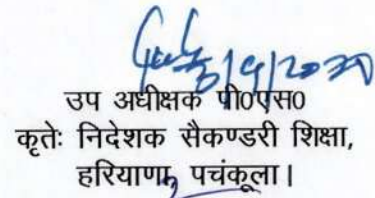 3/9/2020
उप अधीक्षक पी०एस०
कृतेः निदेशक सैकण्डरी शिक्षा,
हरियाणा, पचंकूला।